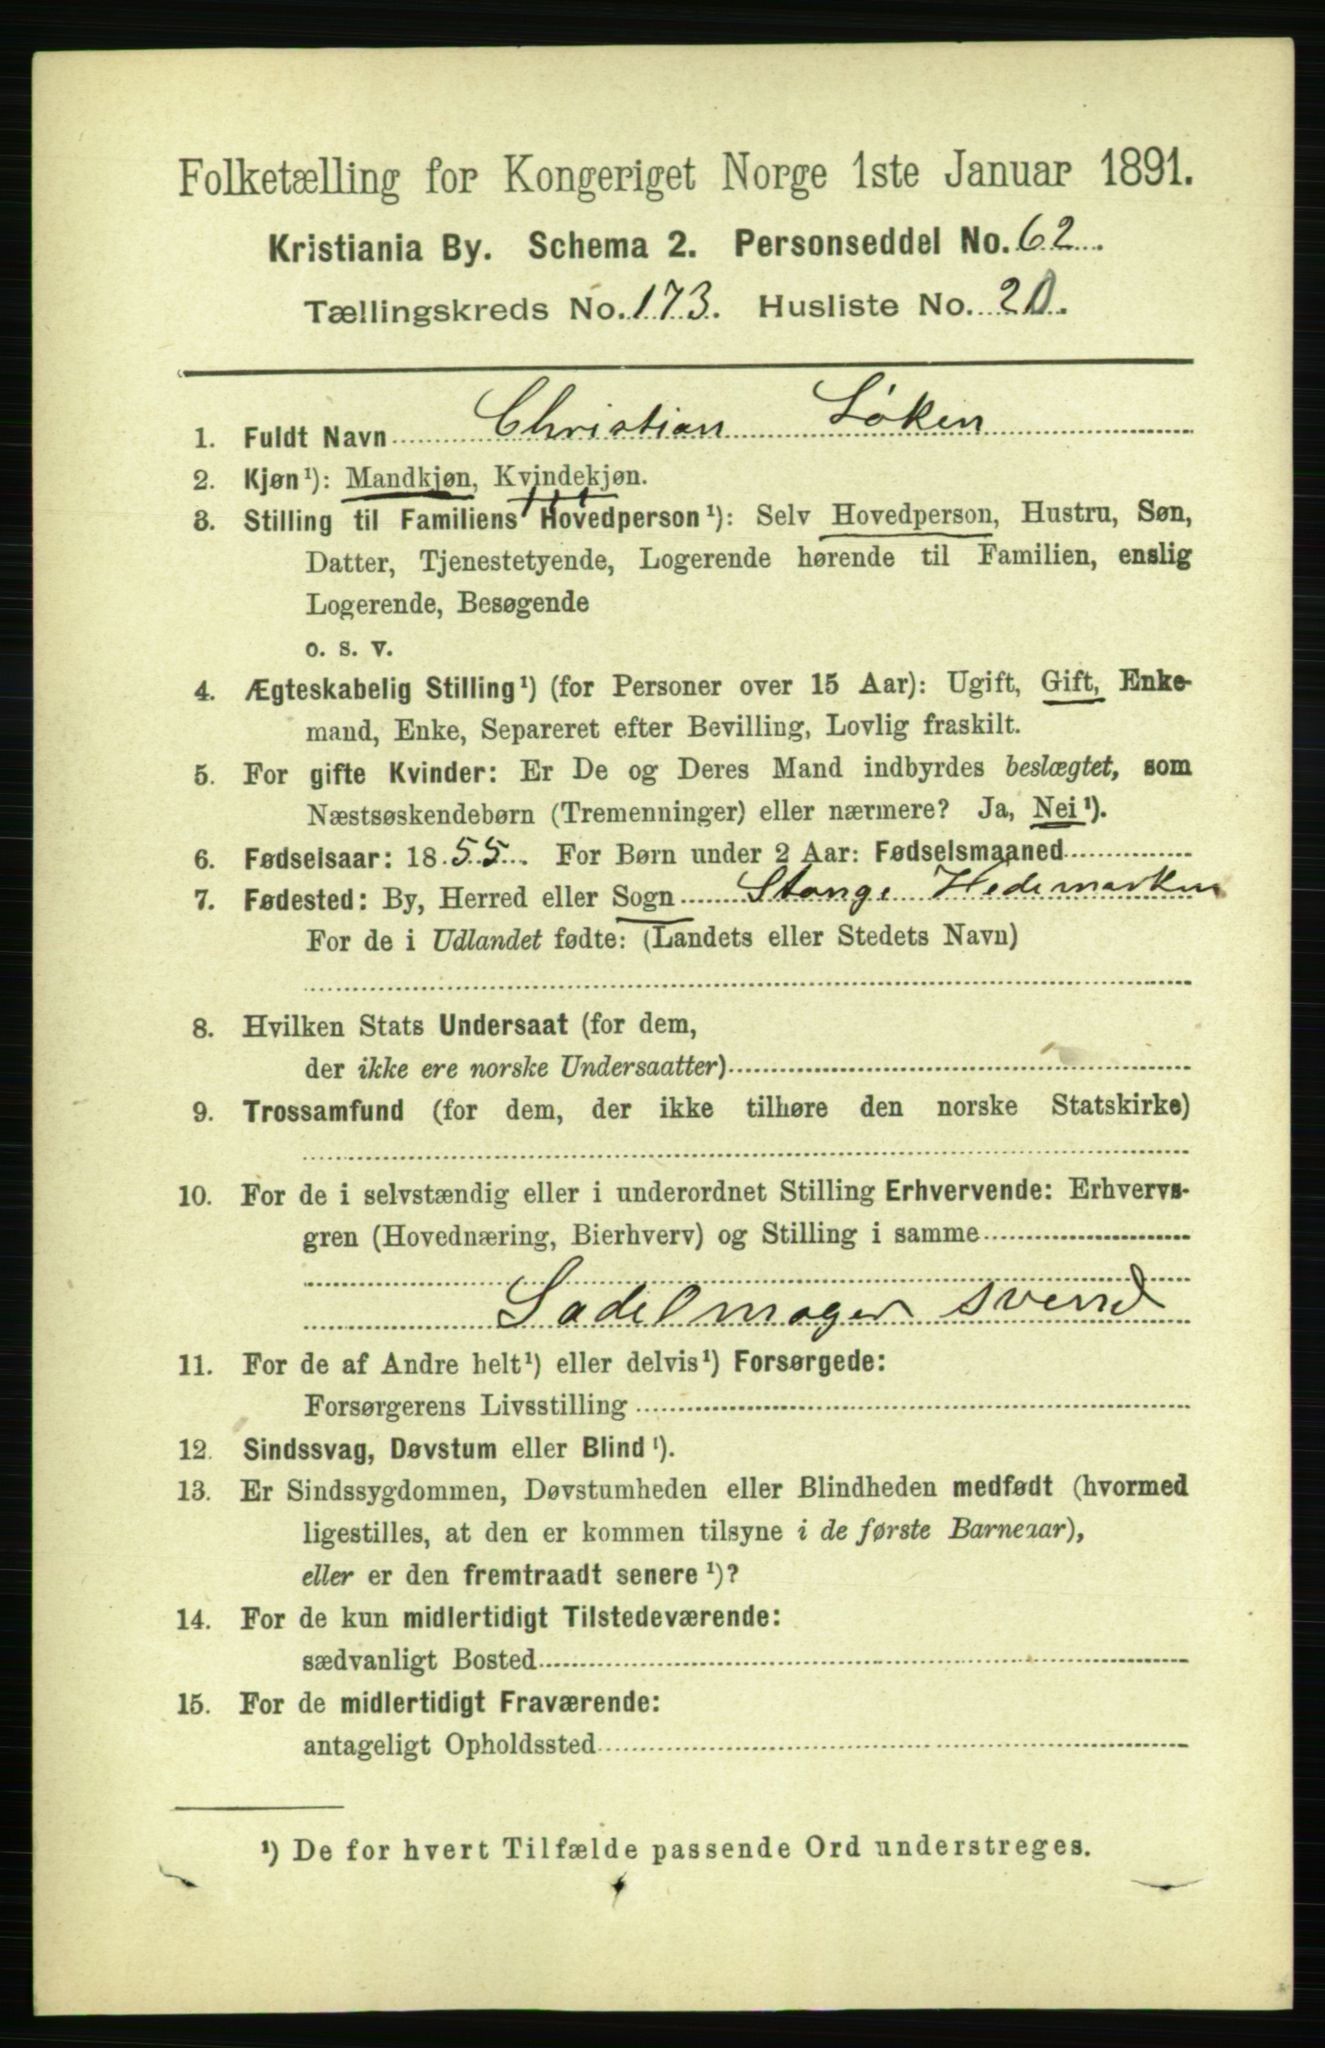 Folketælling for Kongeriget Norge 1ste Januar 1891.
Kristiania By. Schema 2. Personseddel No. 62.
Tællingskreds No. 173. Husliste No. 20.
1. Fuldt Navn Christian Løken
2. Kjøn¹): Mandkjøn, Kvindekjøn.
3. Stilling til Familiens Hovedperson¹): Selv Hovedperson, Hustru, Søn,
Datter, Tjenestetyende, Logerende hørende til Familien, enslig
Logerende, Besøgende
o. s. v.
4. Ægteskabelig Stilling¹) (for Personer over 15 Aar): Ugift, Gift, Enke-
mand, Enke, Separeret efter Bevilling, Lovlig fraskilt.
5. For gifte Kvinder: Er De og Deres Mand indbyrdes beslægtet, som
Næstsøskendebørn (Tremenninger) eller nærmere? Ja, Nei¹).
6. Fødselsaar: 1855. For Børn under 2 Aar: Fødselsmaaned
7. Fødested: By, Herred eller Sogn Stange Hedemarken
For de i Udlandet fødte: (Landets eller Stedets Navn)
8. Hvilken Stats Undersaat (for dem,
der ikke ere norske Undersaatter)
9. Trossamfund (for dem, der ikke tilhøre den norske Statskirke)
10. For de i selvstændig eller i underordnet Stilling Erhvervende: Erhvervs-
gren (Hovednæring, Bierhverv) og Stilling i samme
Sadelmager svend
11. For de af Andre helt¹) eller delvis¹) Forsørgede:
Forsørgerens Livsstilling
12. Sindssvag, Døvstum eller Blind¹).
13. Er Sindssygdommen, Døvstumheden eller Blindheden medfødt (hvormed
ligestilles, at den er kommen tilsyne i de første Barneaar),
eller er den fremtraadt senere¹)?
14. For de kun midlertidigt Tilstedeværende:
sædvanligt Bosted
15. For de midlertidigt Fraværende:
antageligt Opholdssted
¹) De for hvert Tilfælde passende Ord understreges.